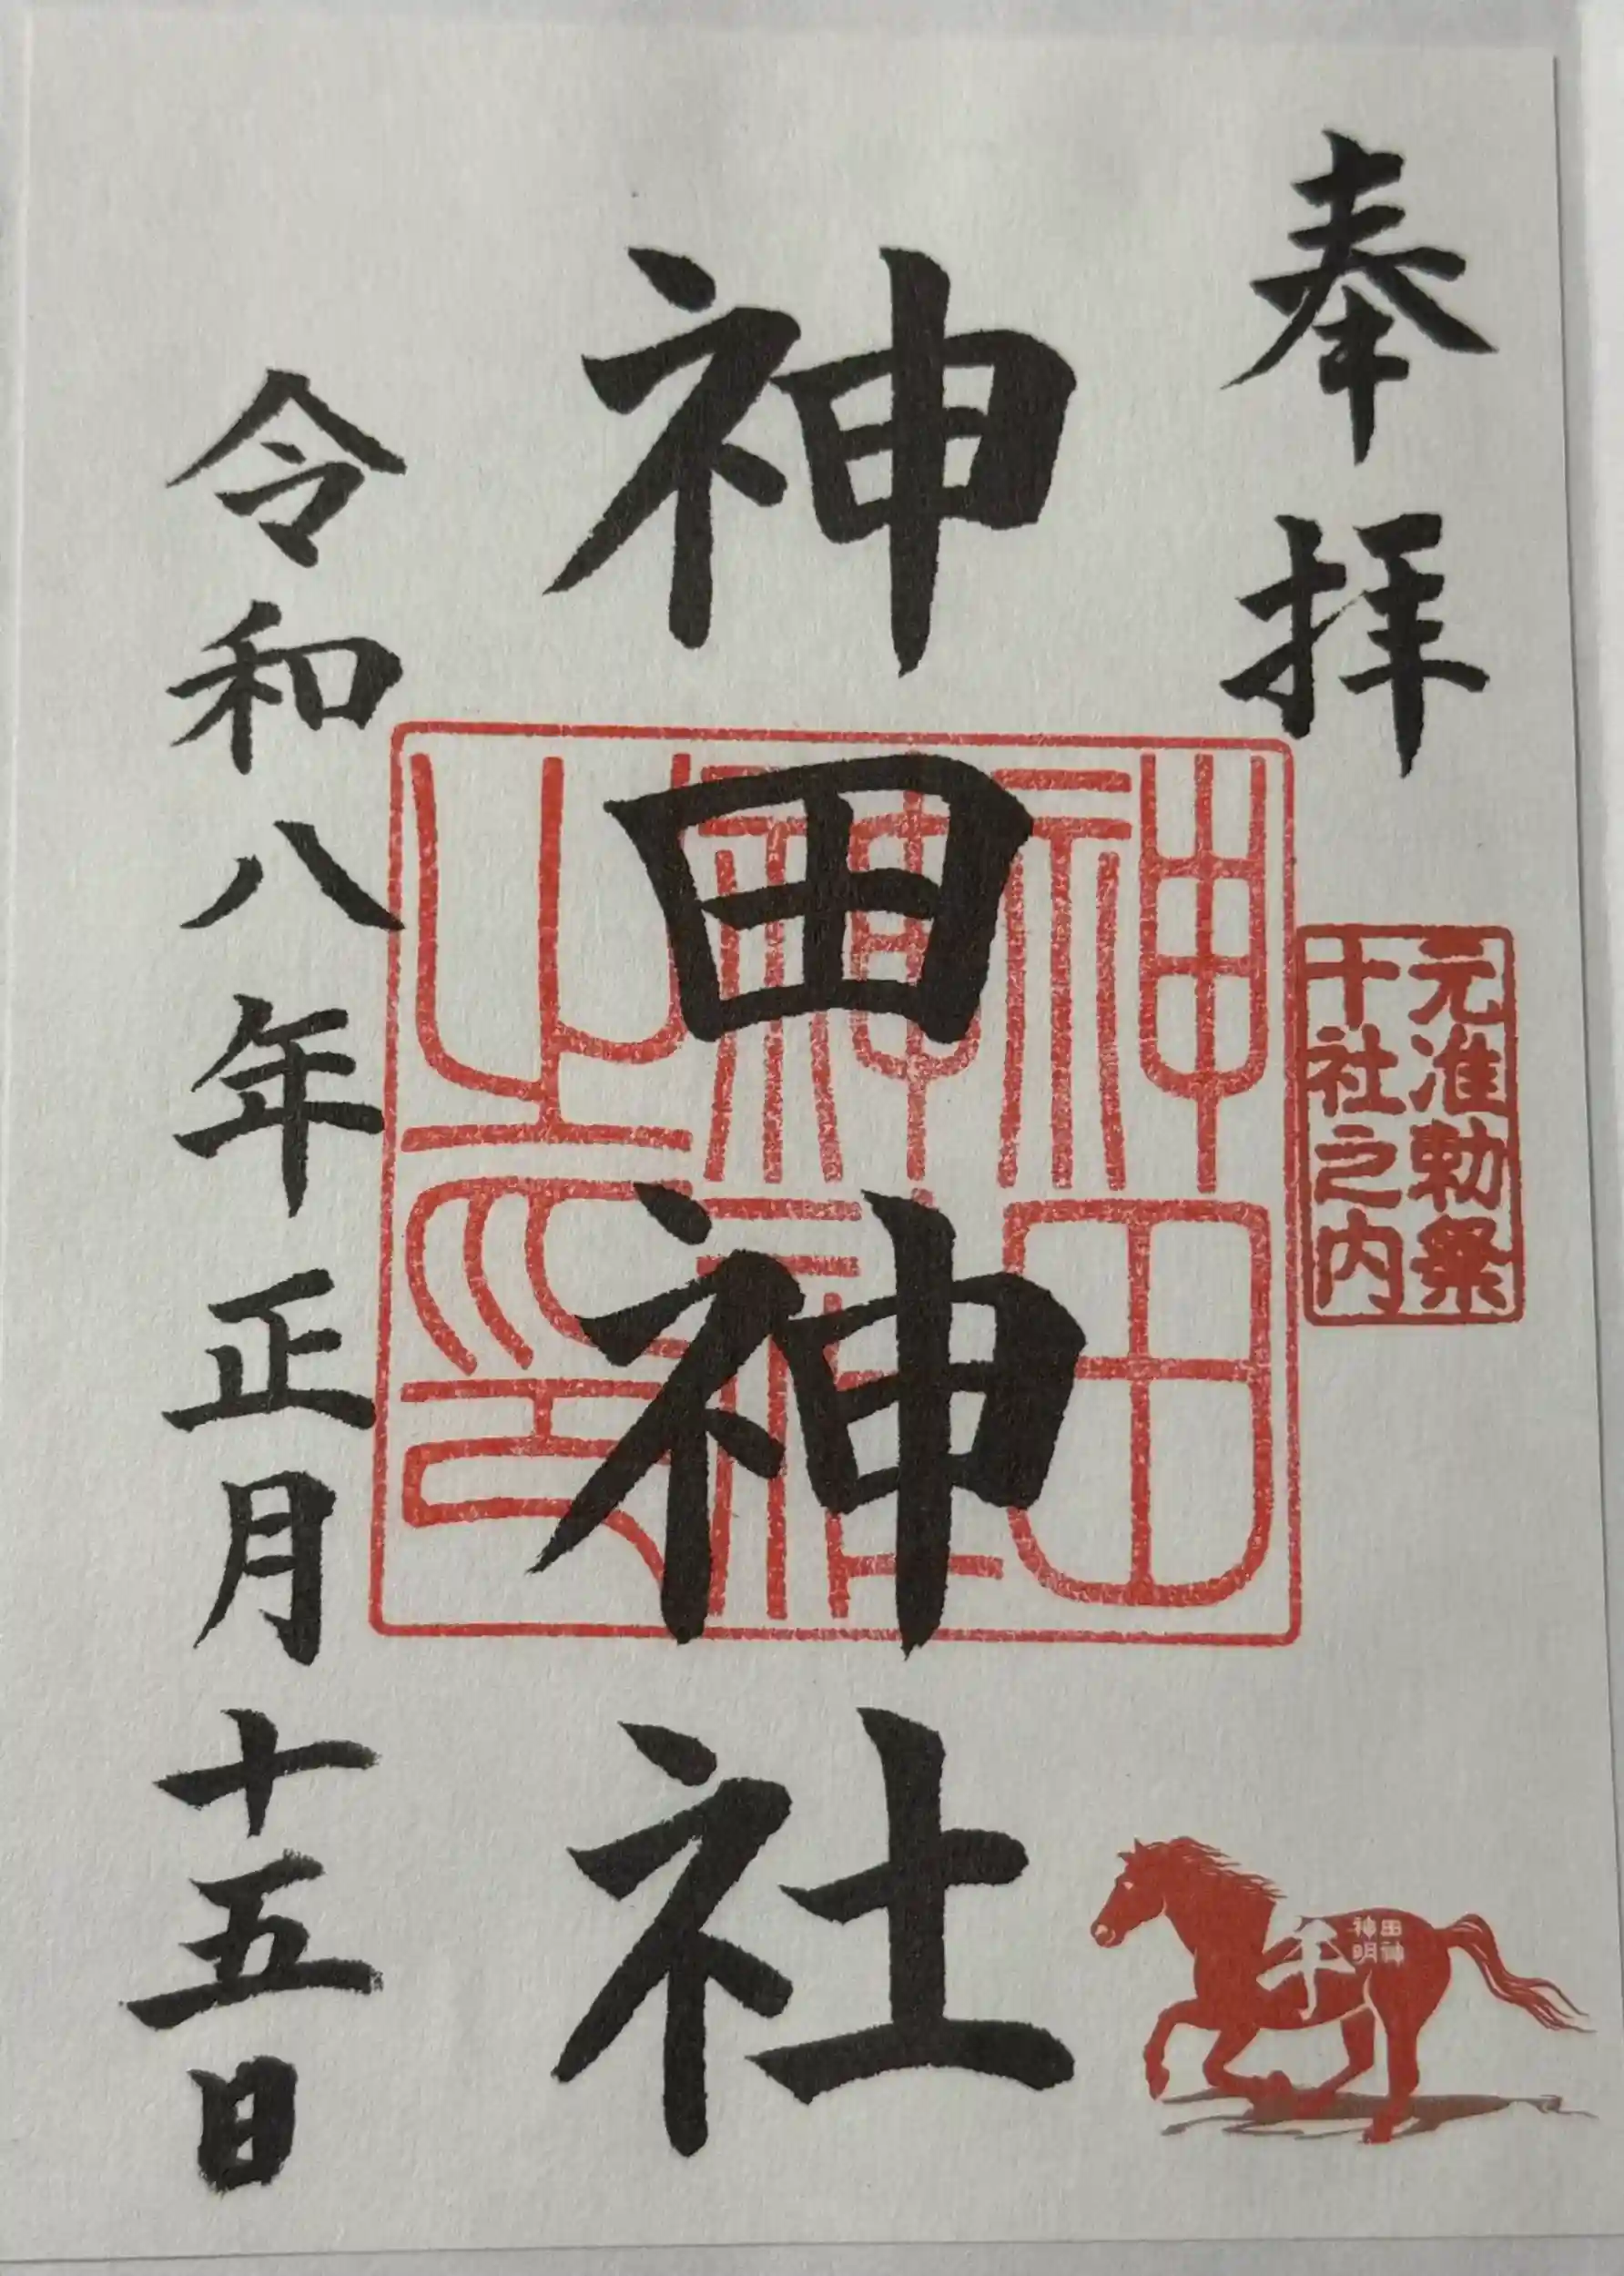 奉拝
元准勅祭
十社之内
神田神社
神田
神社
之印
午
神田
明神
令和八年正月十五日